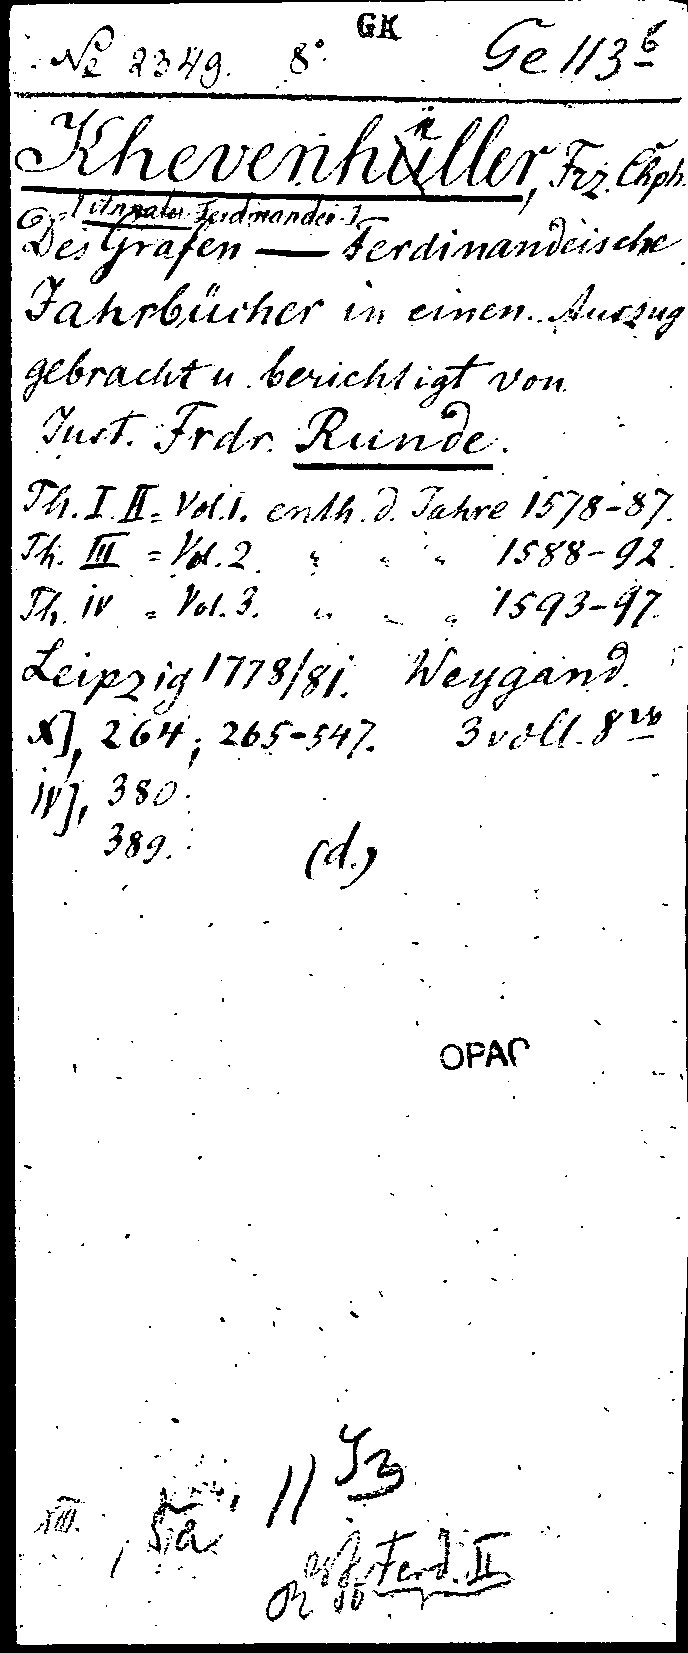 GK
No 2349. 8° Ge 113 b
Khevenhüller, Frz. Chph.
[Annales Ferdinandei.]
Des Grafen — Ferdinandeische
Jahrbücher in einen Auszug
gebracht u berichtigt von
Just. Frdr. Runde.
Th. I. II = Vol. 1. enth. d. Jahre 1578-87.
Th. III = Vol. 2. " " " 1588-92.
Th. IV = Vol. 3. " " " 1593-97.
Leipzig 1778/81. Weygand.
X], 264; 265-547. 3 voll. 8vo
IV], 380.
389. (d.)
OPAC
XIII. 5a 11
Ferd. II